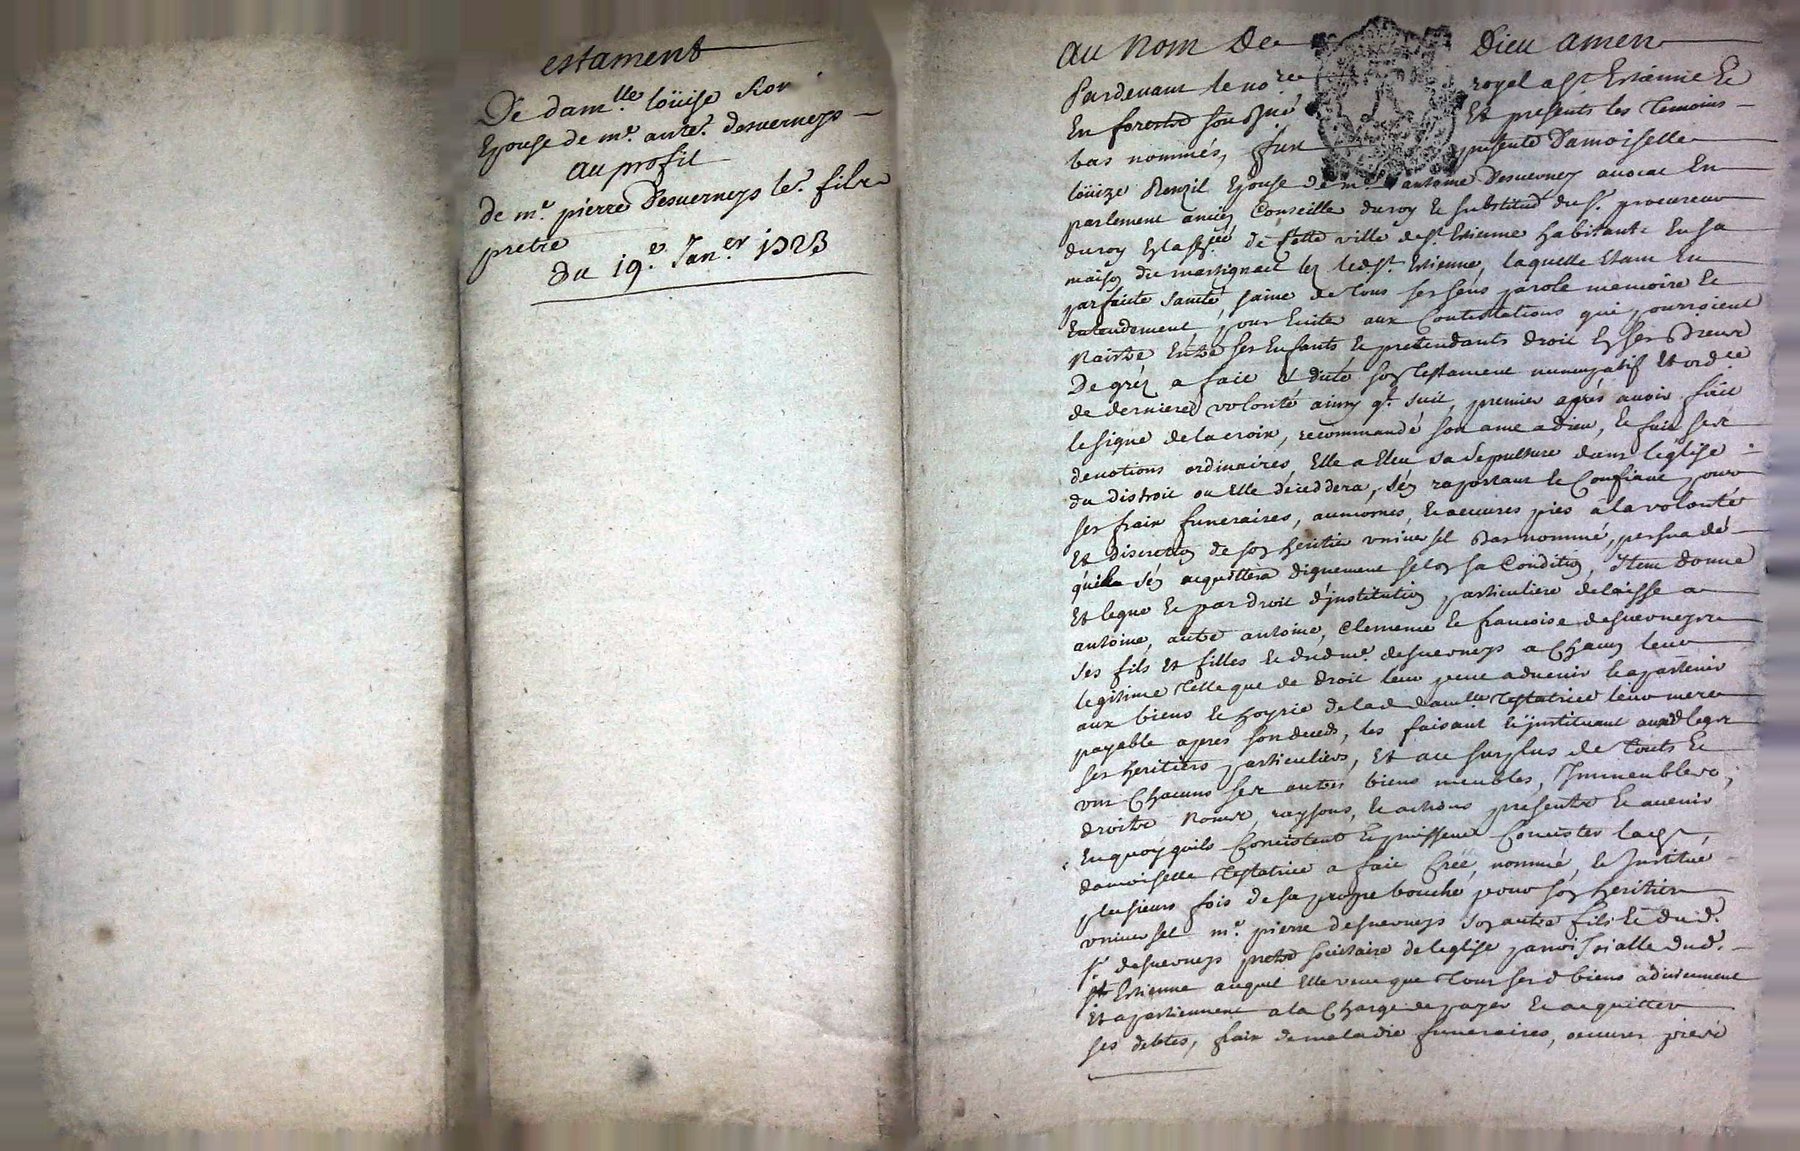 estament
De dam.lle loüise
Epouse de m.e ant.e desuerneys
au profit
de m.e pierre Desuerneys le.r fils
pretre
Du 19.e Jan.er 1723
au nom de Dieu amen
Pardeuant le no.re royal a S.t Estienne Et
En forest sousigné Et presents les temoins
bas nommés, fut presente Damoiselle
loüize Epouse de m.e antoine Desuerneys auocat En
parlement ancien Conseille du roy Et substitud du S.r procureur
du roy de cette ville de S.t Estienne habitante En sa
maison du lez led. S.t Estienne, laquelle Etant En
parfaite santé saine de tous ses sens parole memoire Et
Entendement, pour Euiter aux Contestations qui pourroient
Naistre Entre ses Enfants Et pretendants droit En ses Biens
De gréz a fait & dicté son testament nuncupatif Et ord.ce
de derniere volonté ainsy q.t suit, premier aprés auoir fait
le signe de la croix, recommandé son ame a dieu, Et fait ses
deuotions ordinaires, Elle a Eleu sa sepulture dans l'eglise
du distroit ou Elle deceddera, s'en raportant Et Confiant pour
ses fraix funeraires, aumones, Et oeuures pies a la volonté
Et Discretion de son heritier vniuersel Bas nommé, persuadé
quil s'en acquittera dignement selon sa Condition, Item donne
Et legue Et par droit d'institution particuliere delaisse a
antoine, autre antoine, Clemence Et francoise desuerneys
ses fils Et filles Et dud. m.e desuerneys a Chacun leur
legitime telle que de droit leur peut aduenir Et apartenir
aux biens Et hoyrie de lad. dam.lle testatrice leur mere
payable apres son deceds, les faisant Et instituant auxd. legs
ses heritiers particuliers, Et au surplus de touts Et
vns Chacuns ses autres biens meubles, Immeubles,
droits Noms, raysons, Et actions presents Et auenir,
En quoy quils Consistent Et puissent Concister
damoiselle testatrice a fait Créé, nommé, Et Institué
plusieurs fois de sa propre bouche pour son heritier
vniuersel m.e pierre desuerneys son autre fils Et dud.
S.r desuerneys pretre societaire de l'eglise parroissialle dud.
S.t Estienne auquel Elle veut que tous sesd. biens aduiennent
Et apartiennent a la Charge de payer Et acquitter
ses debtes, fraix de maladie funeraires, oeuures pies